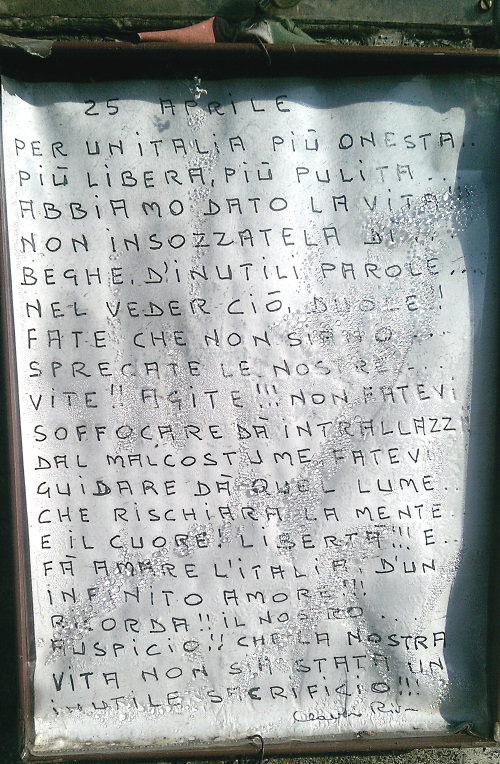 25 APRILE
PER UN ITALIA PIÙ ONESTA..
PIÙ LIBERA, PIÙ PULITA...
ABBIAMO DATO LA VITA!!!
NON INSOZZATELA DI....
BEGHE, D'INUTILI PAROLE....
NEL VEDER CIÒ, DUOLE!
FATE CHE NON SIANO...
SPRECATE LE NOSTRE....
VITE!! AGITE!!! NON FATEVI
SOFFOCARE DÀ INTRALLAZZI
DAL MALCOSTUME FATEVI
GUIDARE DA QUEL LUME..
CHE RISCHIARA LA MENTE.
E IL CUORE! LIBERTÀ!!! E..
FÀ AMARE L'ITALIA, D'UN
INFINITO AMORE!!!
RICORDA!! IL NOSTRO....
AUSPICIO!! CHE LA NOSTRA
VITA NON SIA STATA UN
INUTILE SACRIFICIO!!!